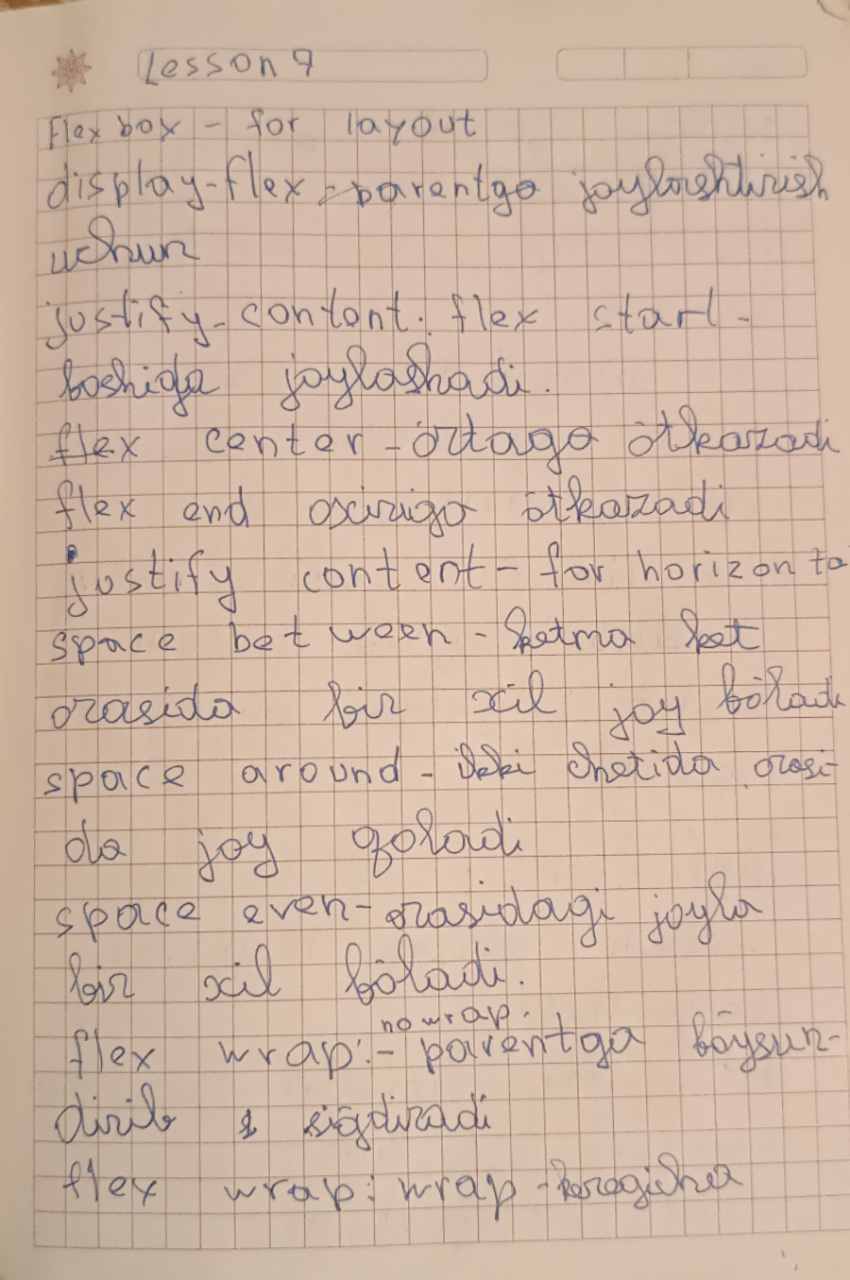 Lesson 9
Flex box - for layout
display-flex - parentga joylashtirish
uchun
justify-content: flex start -
boshida joylashadi.
flex center - ōrtaga ōtkazadi
flex end oxiriga ōtkazadi
justify content - for horizonta
space between - ketma ket
orasida bir xil joy bōladi
space around - ikki chetida orasi-
da joy qoladi
space even - orasidagi joyla
bir xil bōladi.
nowrap.
flex wrap: - parentga bōysun-
dirib sigdiradi
flex wrap: wrap - keragicha